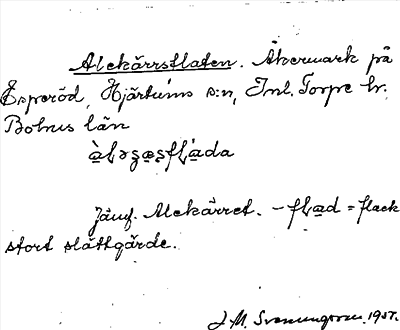 Alekärrsflaten. Åkermark på
Esperöd, Hjärtums s:n, Inl. Torpe hr.
Bohus län
Jämf. Alekärret. - flad = flack
stort slättgärde.
J. M. Svenungsson. 1907.